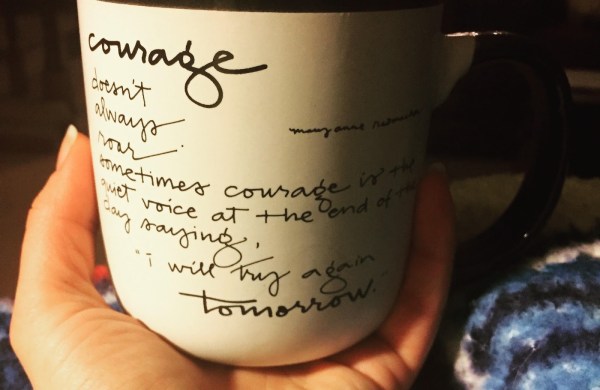 courage
doesn't
always
roar.
mary anne
sometimes courage is the
quiet voice at the end of the
day saying,
"i will try again
tomorrow."